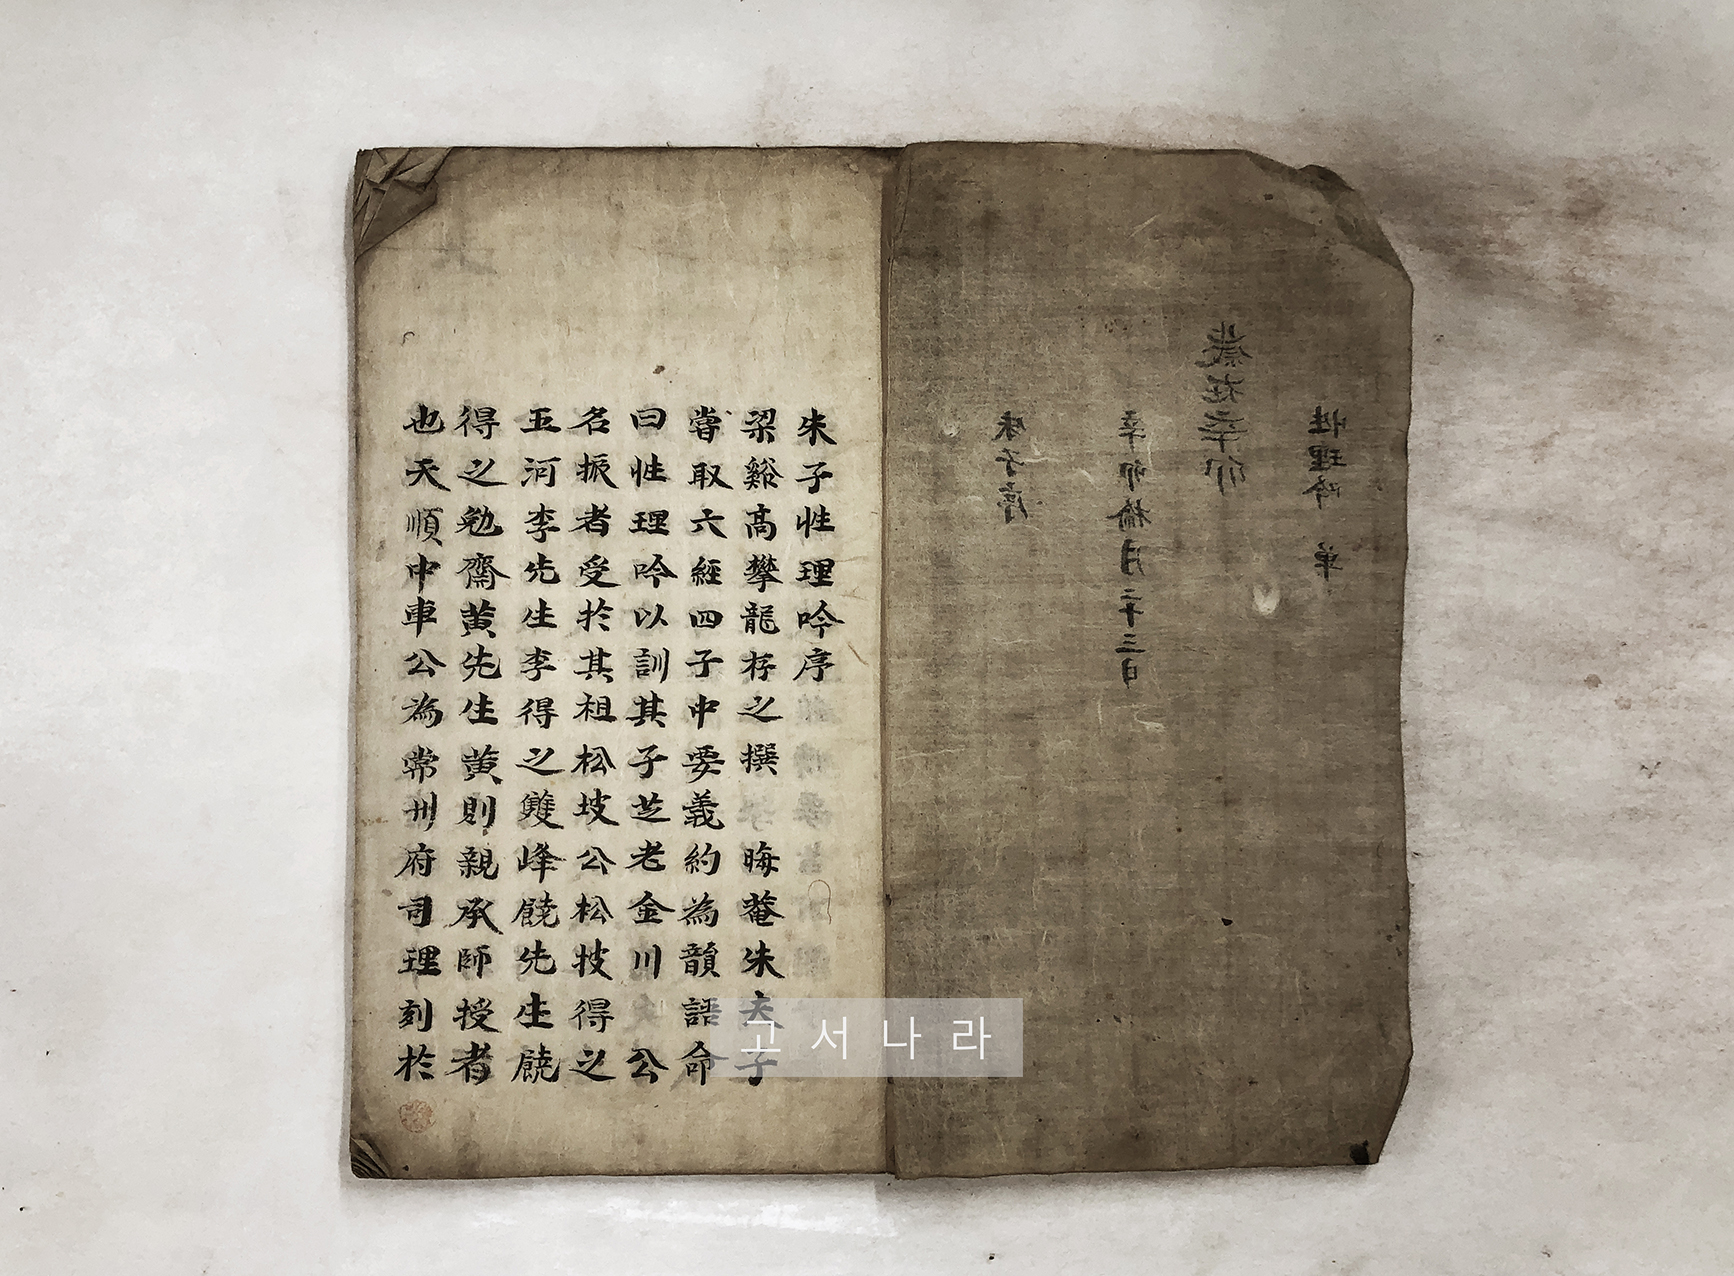 性理吟 單
歲在辛卯
辛卯 月二十三日
朱子序
朱子性理吟序
梁谿高攀龍存之撰 晦菴朱夫子
嘗取六經四子中要義約為韻語命
曰性理吟以訓其子芝老金川 公
名振者受於其祖松坡公松披得之
玉河李先生李得之雙峰饒先生饒
得之勉齋黃先生黃則親承師授者
也天順中車公為常州府司理刻於
고서나라